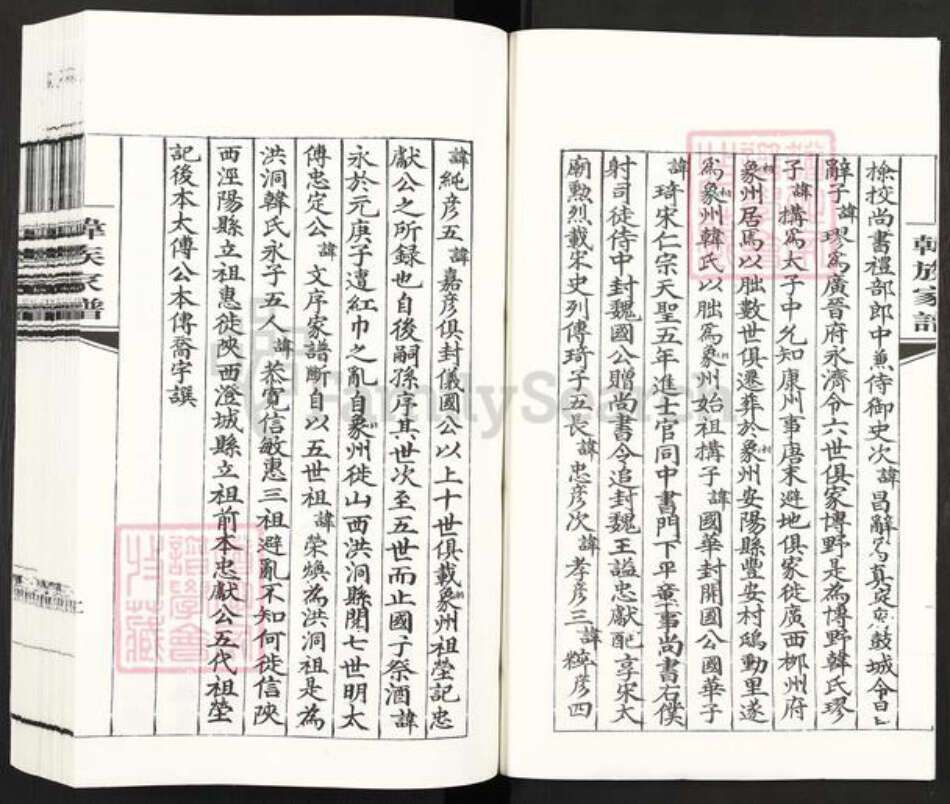 韓族家譜
檢挍尚書禮部郎中兼侍御史次諱昌辭為真定鼓城令昌
辭子諱璆為廣晉府永濟令六世俱家博野是為博野韓氏璆
子諱構為太子中允知康州事唐末避地俱家徙廣西柳州府
象州居焉以朏數世俱遷葬於象州安陽縣豐安村鴟動里遂
為象州韓氏以朏為象州始祖構子諱國華封開國公國華子
諱琦宋仁宗天聖五年進士官同中書門下平章事尚書右僕
射司徒侍中封魏國公贈尚書令追封魏王謚忠獻配享宋太
廟勲烈載宋史列傳琦子五長諱忠彦次諱孝彦三諱粹彦四
諱純彦五諱嘉彦俱封儀國公以上十世俱載象州祖塋記忠
獻公之所録也自後嗣孫序其世次至五世而止國子祭酒諱
永於元庚子遭紅巾之亂自象州徙山西洪洞縣閱七世明太
傅忠定公諱文序家譜斷自以五世祖諱榮煥為洪洞祖是為
洪洞韓氏永子五人諱恭寬信敏惠三祖避亂不知何徙信陝
西涇陽縣立祖惠徙陝西澄城縣立祖前本忠獻公五代祖塋
記後本太傅公本傳喬宇譔
韓族家譜
譜學會
收藏
FamilySearch